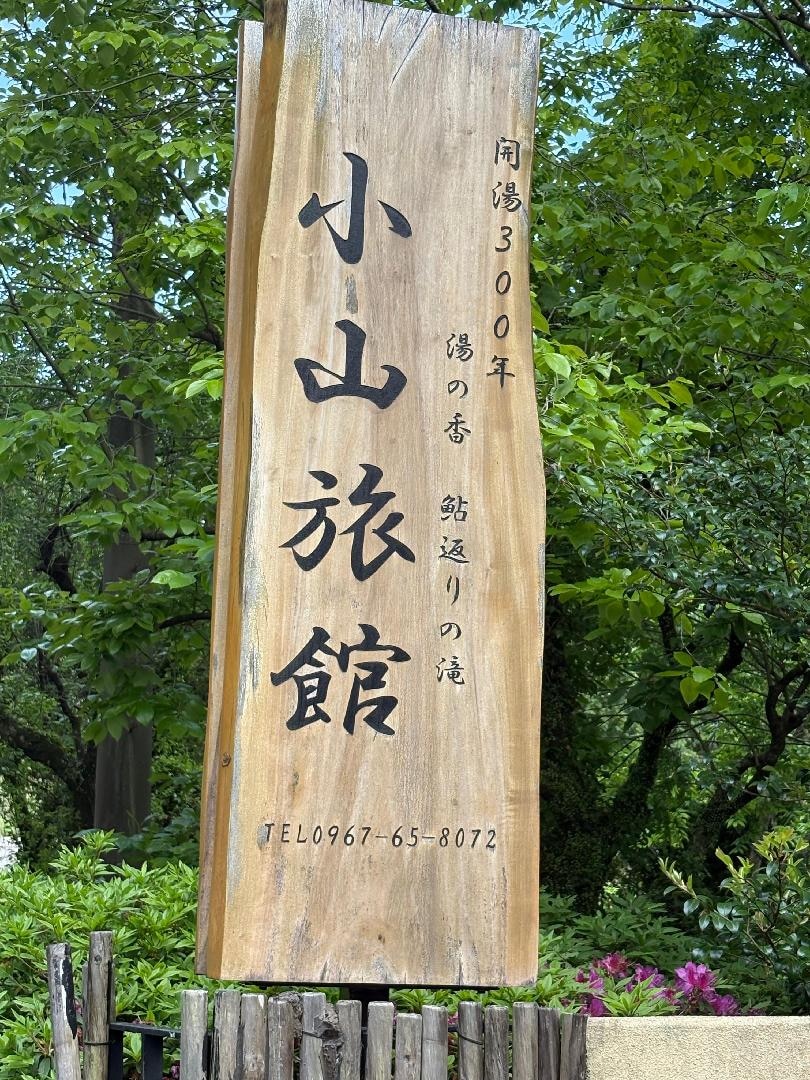 開湯300年
湯の香 鮎返りの滝
小山旅館
TEL0967-65-8072